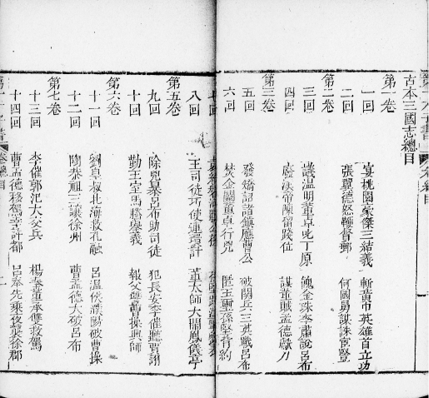 古本三國志總目
第一卷
一回 宴桃園豪傑三結義 斬黃巾英雄首立功
二回 張翼德怒鞭督郵 何國舅謀誅宦豎
第二卷
三回 議溫明董卓叱丁原 餽金珠李肅說呂布
四回 廢漢帝陳留踐位 謀董賊孟德獻刀
第三卷
五回 發矯詔諸鎮應曹公 破關兵三英戰呂布
六回 焚金闕董卓行兇 匿玉璽孫堅背約
七回
八回 王司徒巧使連環計 董太師大鬧鳳儀亭
第五卷
九回 除兇暴呂布助司徒 犯長安李催聽賈詡
十回 勤王室馬騰舉義 報父讐曹操興師
第六卷
十一回 劉皇叔北海救孔融 呂溫侯濮陽破曹操
十二回 陶恭祖三讓徐州 曹孟德大破呂布
第七卷
十三回 李催郭汜大交兵 楊奉董承雙救駕
十四回 曹孟德移駕幸許都 呂奉先乘夜襲徐郡